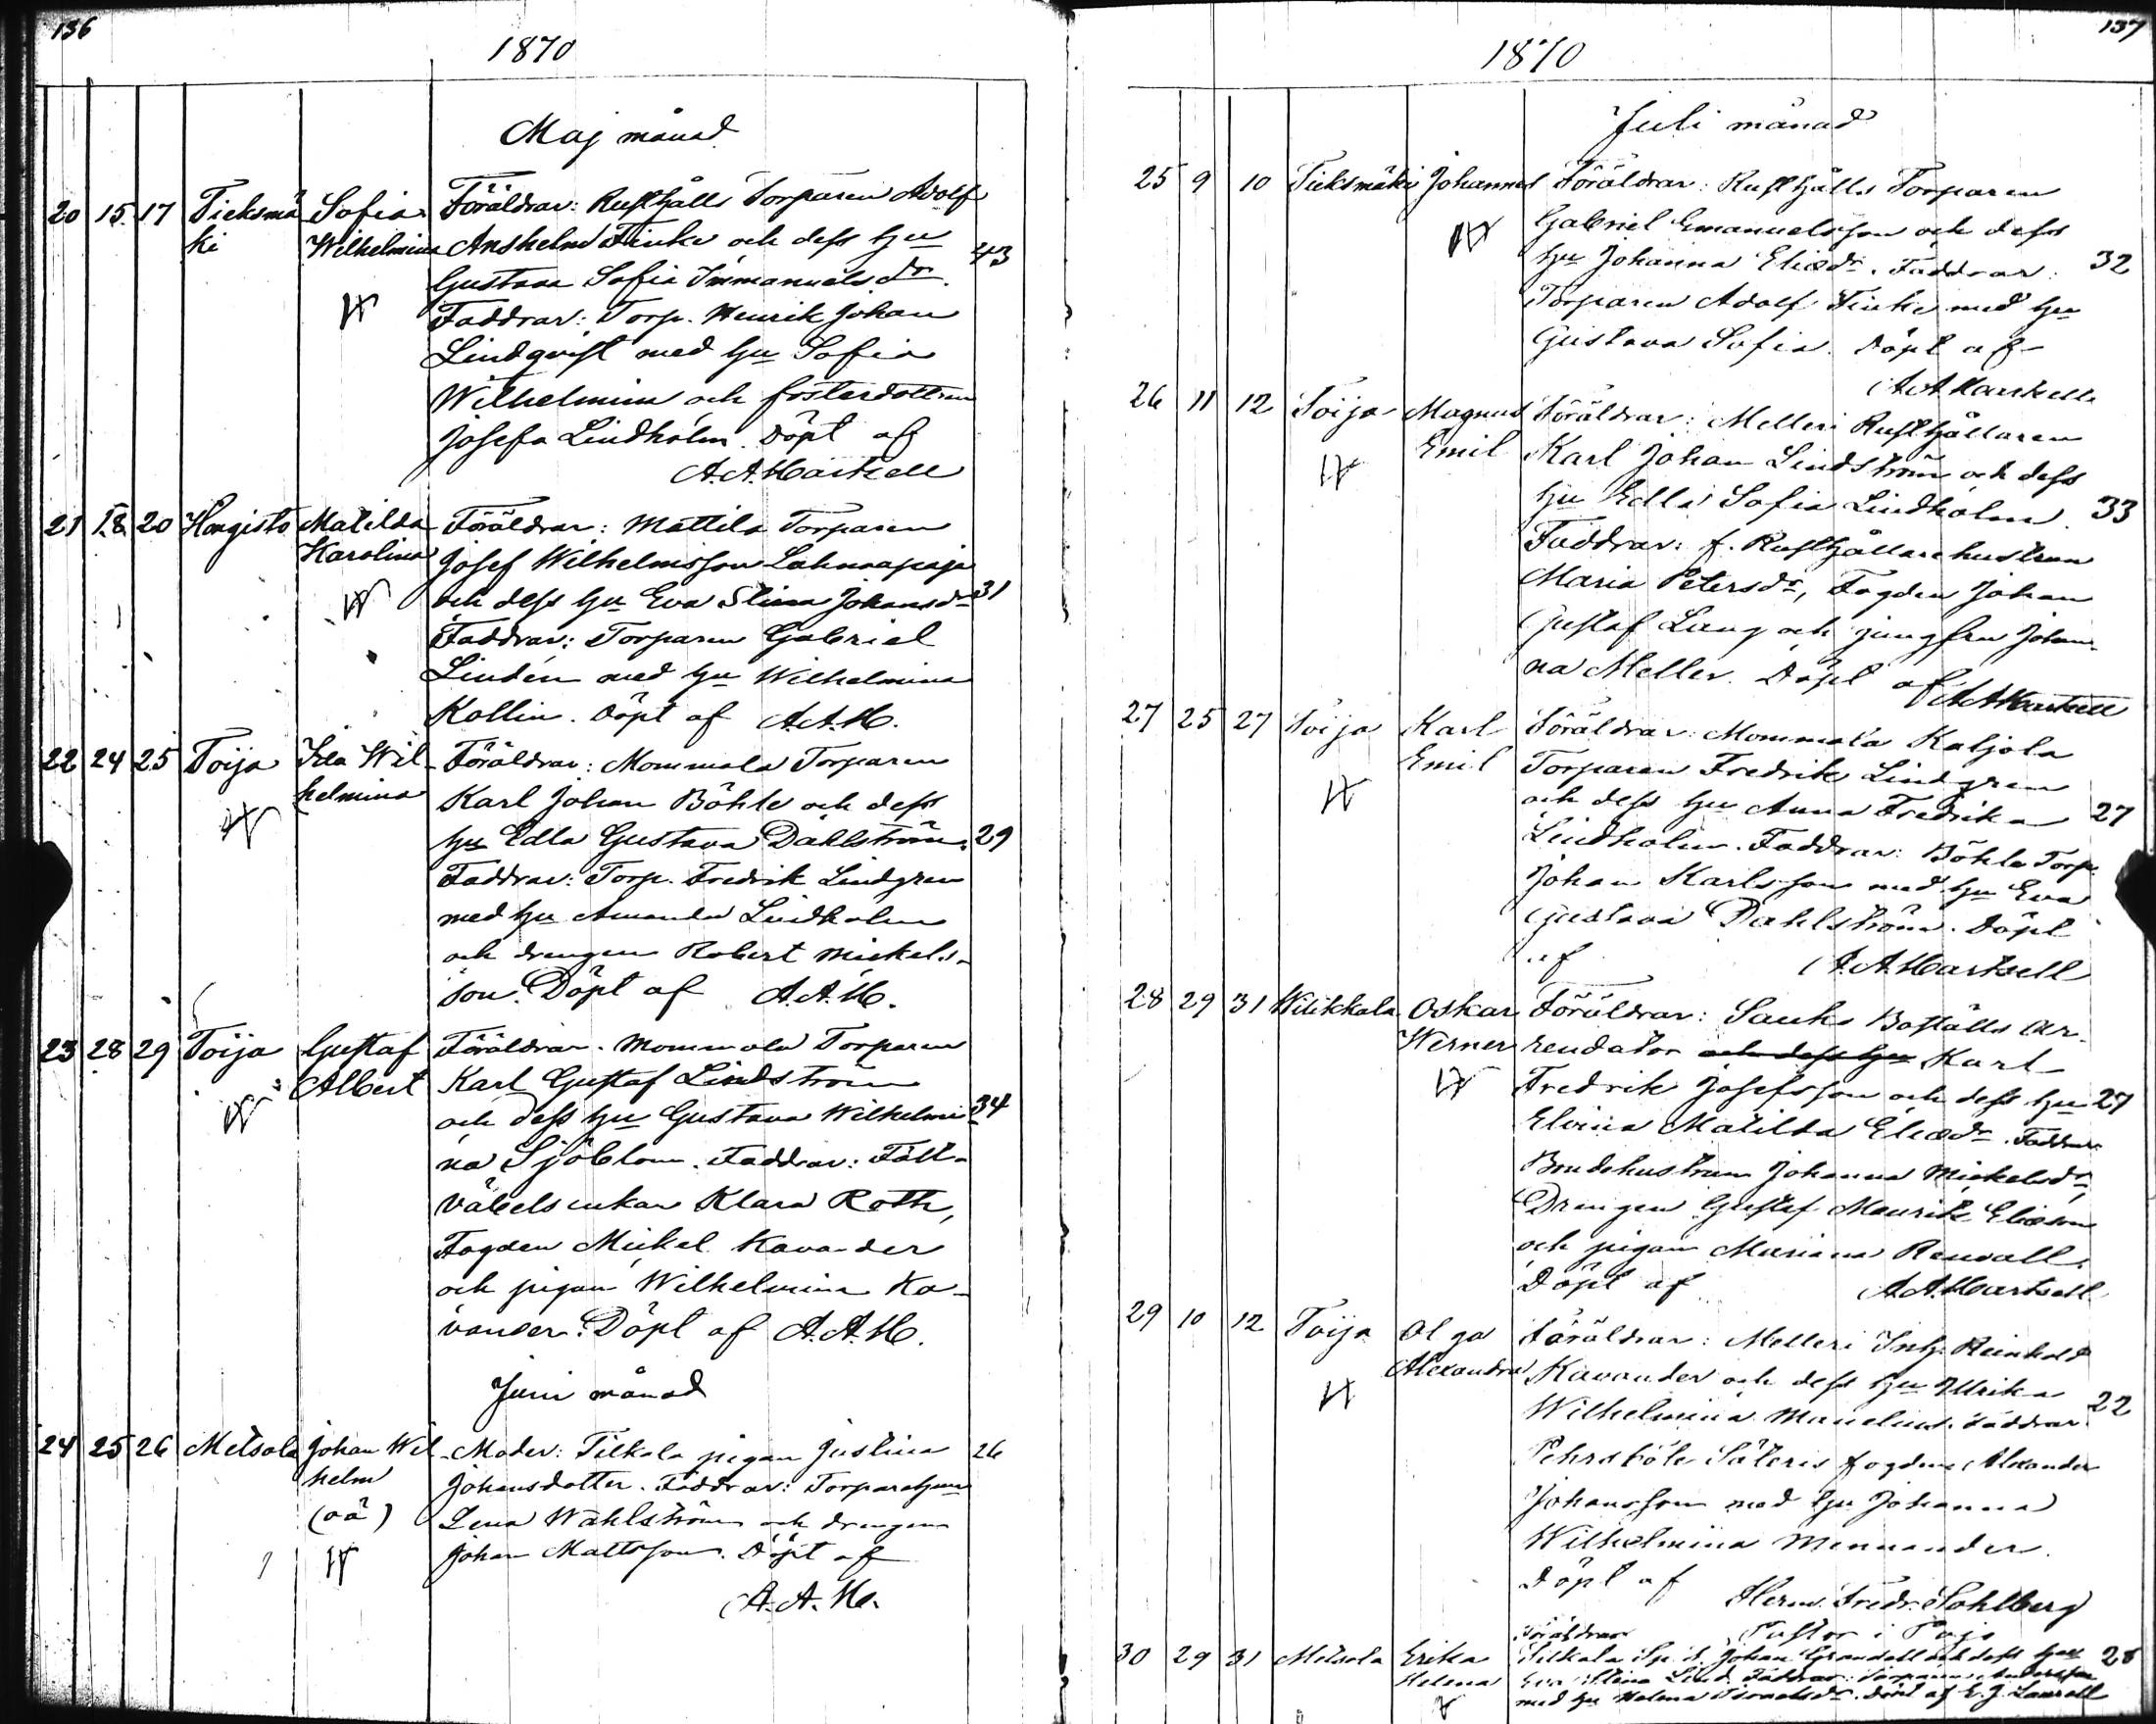 136
1870
Maj månad
20 15 17 Tieksmä Sofia Föräldrar: Rusthålls Torparen Adolf
ki Wilhelmina Anshelm Finke och dess hu 43
Gustava Sofia Immanuelsdr.
Faddrar: Torp. Henrik Johan
Lindqvist med hu Sofia
Wilhelmina och fosterdottren
Josefa Lindholm. Döpt af
A.A. Hartzell
21 18 20 Hongisto Matilda Föräldrar: Mattila Torparen
Karolina Josef Wilhelmsson Lahnapaja
och dess hu Eva Stina Johansdr 31
Faddrar: Torparen Gabriel
Lindén med hu Wilhelmina
Kollin. Döpt af A.A.H.
22 24 25 Toija Ida Wil- Föräldrar: Mommola Torparen
helmina Karl Johan Böhle och dess
hu Edla Gustava Dahlström. 29
Faddrar: Torp. Fredrik Lindgren
med hu Amanda Lindholm
och drengen Robert Mickels-
son. Döpt af A.A.H.
23 28 29 Toija Gustaf Föräldrar. Mommola Torparen
Albert Karl Gustaf Lindström
och dess hu Gustava Wilhelmi- 34
na Sjöblom. Faddrar: Fält-
väbels enkan Klara Roth,
Fogden Mickel Kavander
och pigan Wilhelmina Ka-
vander. Döpt af A.A.H.
Juni månad
24 25 26 Metsola Johan Wil- Moder: Tilkala pigan Justina 26
helm Johansdotter. Faddrar: Torpare hun
(oä) Lena Wahlström och drengen
Johan Mattsson. Döpt af
A.A.H.
137
1870
Juli månad
25 9 10 Tieksmäki Johannes Föräldrar: Rusthålls Torparen
Gabriel Emanuelsson och dess
hu Johanna Eliædr. Faddrar: 32
Torparen Adolf Finke med hu
Gustava Sofia. Döpt af
A.A. Hartzell
26 11 12 Toija Magnus Föräldrar: Melleri Rusthållaren
Emil Karl Johan Lindström och dess
hu Edla Sofia Lindholm. 33
Faddrar: f. Rusthållarehustrun
Maria Petersdr, Fogden Johan
Gustaf Lang och jungfru Johan-
na Meller. Döpt af A.A. Hartzell
27 25 27 Toija Karl Föräldrar: Mommola Kaljola
Emil Torparen Fredrik Lindgren
och dess hu Anna Fredrika 27
Lindholm. Faddrar: Böhle Torp.
Johan Karlsson med hu Eva
Gustava Dahlström. Döpt
af A.A. Hartzell
28 29 31 Wilikkala Oskar Föräldrar: Sauks Boställs Ar-
Werner rendator och dess hu Karl
Fredrik Josefsson och dess hu 27
Elvina Matilda Eliædr. Faddrar:
Bondehustrun Johanna Mickelsdr,
Drengen Gustaf Maurits Eliæson
och pigan Mariana Renvall.
Döpt af A.A. Hartzell
29 10 12 Toija Olga Föräldrar: Melleri Inh. Reinhold
Alexandra Kavander och dess hu Ulrika
Wilhelmina Manelius. Faddrar: 22
Pehrsböle Säteris fogden Alexander
Johansson med hu Johanna
Wilhelmina Mennander.
Döpt af
Herm. Fredr. Sohlberg
Pastor i Pojo
30 29 31 Metsola Erika Föräldrar
Helena Tilkala Johan Grandell och dess hu 28
Eva Stina Lind. Faddrar: Torparen Andersson
med hu Helena Israelsdr. Döpt af E.J. Laurell